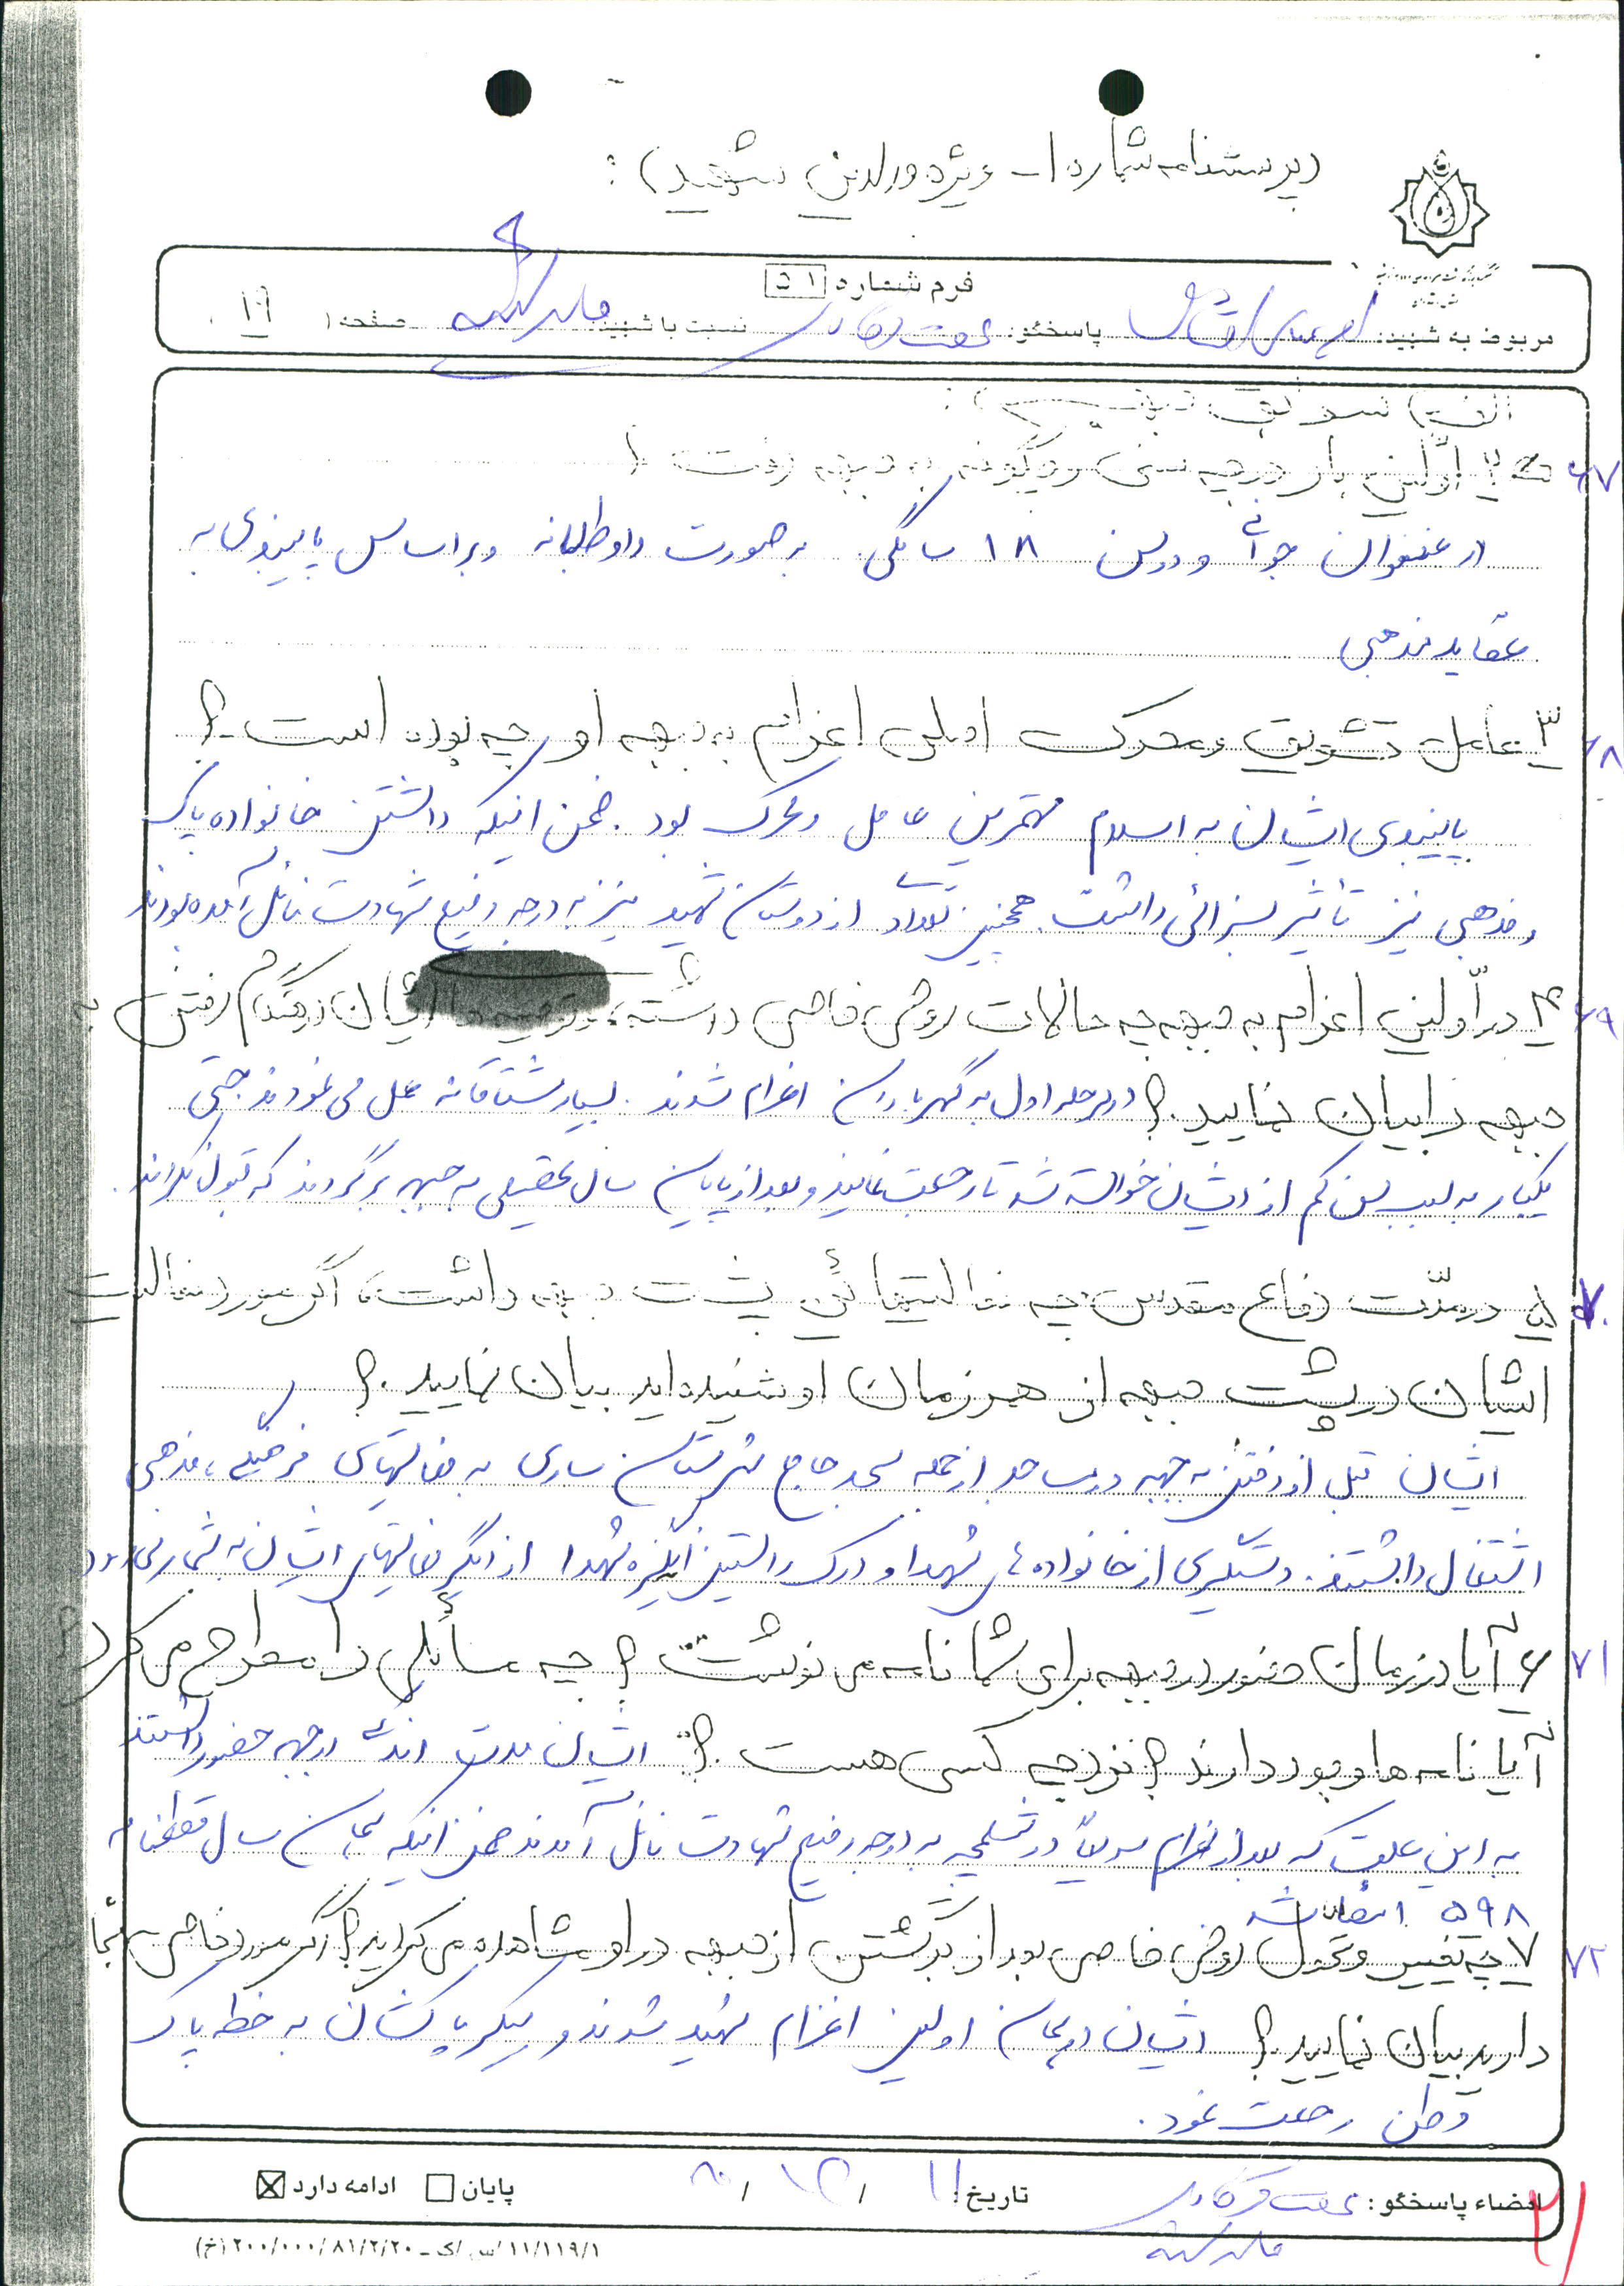 (پرسشنامه شماره ۱- ویژه والدین شهید):
فرم شماره ۵۱
مربوط به شهید: پاسخگو: عفت نسبت با شهید: مادر شهید صفحه ( ۱۹
الف) سوابق جبهه):
۶۷ ۲- اولین بار در چه سنی و چگونه به جبهه رفت؟
در عنفوان جوانی و در سن ۱۸ سالگی به صورت داوطلبانه و بر اساس پایبندی به
عقاید مذهبی
۶۸ ۳- عامل تشویق و محرک اصلی اعزام به جبهه او چه بوده است؟
پایبندی ایشان به اسلام مهمترین عامل و محرک بود. ضمن اینکه داشتن خانواده پاک
و مذهبی نیز تأثیر بسزائی داشت. همچنین تعدادی از دوستان شهید نیز به درجه رفیع شهادت نائل آمده بودند
۶۹ ۴- در اولین اعزام به جبهه چه حالات روحی خاصی داشته، ایشان هنگام رفتن به
جبهه را بیان نمایید.؟ در مرحله اول به گهرباران اعزام شدند. بسیار مشتاقانه عمل می نمودند حتی
یکبار به سبب سن کم از ایشان خواسته شد تا رجعت نمایند و بعد از پایان سال تحصیلی به جبهه برگردند که قبول نکردند.
۷۰ ۵- در مدّت دفاع مقدس چه فعالیتهائی پشت جبهه داشت، اگر مورد فعالیت
ایشان در پشت جبهه از همرزمان او شنیده اید بیان نمایید.؟
ایشان قبل از رفتن به جبهه در مساجد از جمله مسجد جامع شهرستان ساری به فعالیتهای فرهنگی، مذهبی
اشتغال داشتند. دستگیری از خانواده های شهدا و درک راستین انگیزه شهدا از دیگر فعالیتهای ایشان به شمار می رود
۷۱ ۶- آیا در زمان حضور در جبهه برای شما نامه می نوشت؟ چه مسائلی را مطرح می کرد؟
آیا نامه ها وجود دارند؟ نزد چه کسی هست.؟ ایشان مدت اندکی در جبهه حضور داشتند
به این علت که بعد از اعزام سریعاً در شلمچه به درجه رفیع شهادت نائل آمدند ضمن اینکه همان سال قطعنامه
۵۹۸ امضاء شد
۷۲ ۷- چه تغییر و تحول روحی خاصی بعد از برگشتن از جبهه در او مشاهده می کردید؟ اگر مورد خاصی بجا
دارید بیان نمایید.؟ ایشان در همان اولین اعزام شهید شدند و پیکر پاکشان به خطه پاک
وطن رجعت نمود.
امضاء پاسخگو: عفت تاریخ: ۱۱ / / پایان ادامه دارد
مادر شهید
۱۱/۱۱۹/۱/س/ک - ۲۰۰/۰۰۰/۸۱/۲/۲۰ (خ)